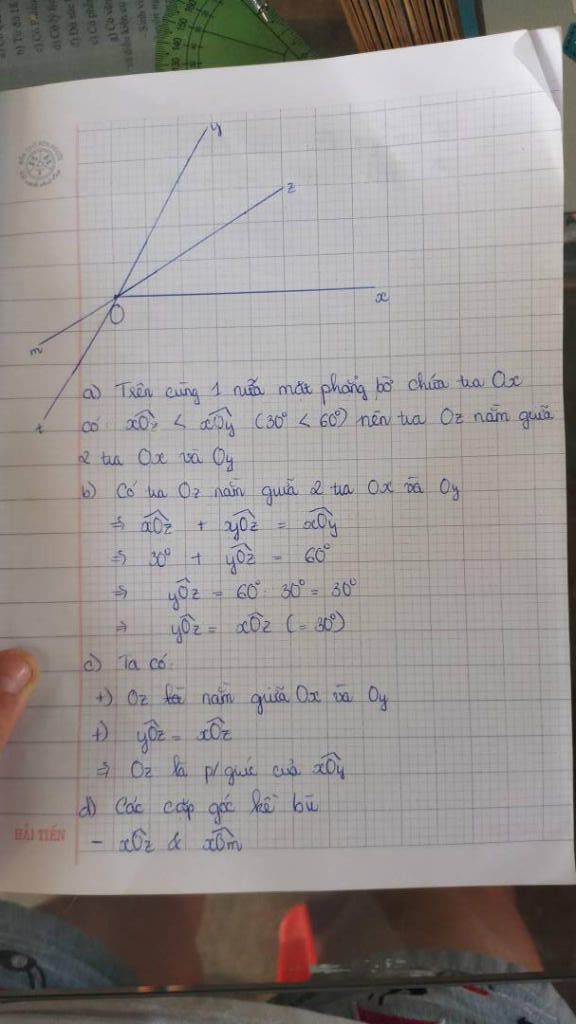 y
z
x
O
m
t
a) Trên cùng 1 nửa mặt phẳng bờ chứa tia Ox
có xÔz < xÔy (30° < 60°) nên tia Oz nằm giữa
2 tia Ox và Oy
b) Có tia Oz nằm giữa 2 tia Ox và Oy
⇒ xÔz + yÔz = xÔy
⇒ 30° + yÔz = 60°
⇒ yÔz = 60° - 30° = 30°
⇒ yÔz = xÔz (= 30°)
c) Ta có:
+) Oz nằm giữa Ox và Oy
+) yÔz = xÔz
⇒ Oz là p/giác của xÔy
d) Các cặp góc kề bù
- xÔz & xÔm
HẢI TIẾN